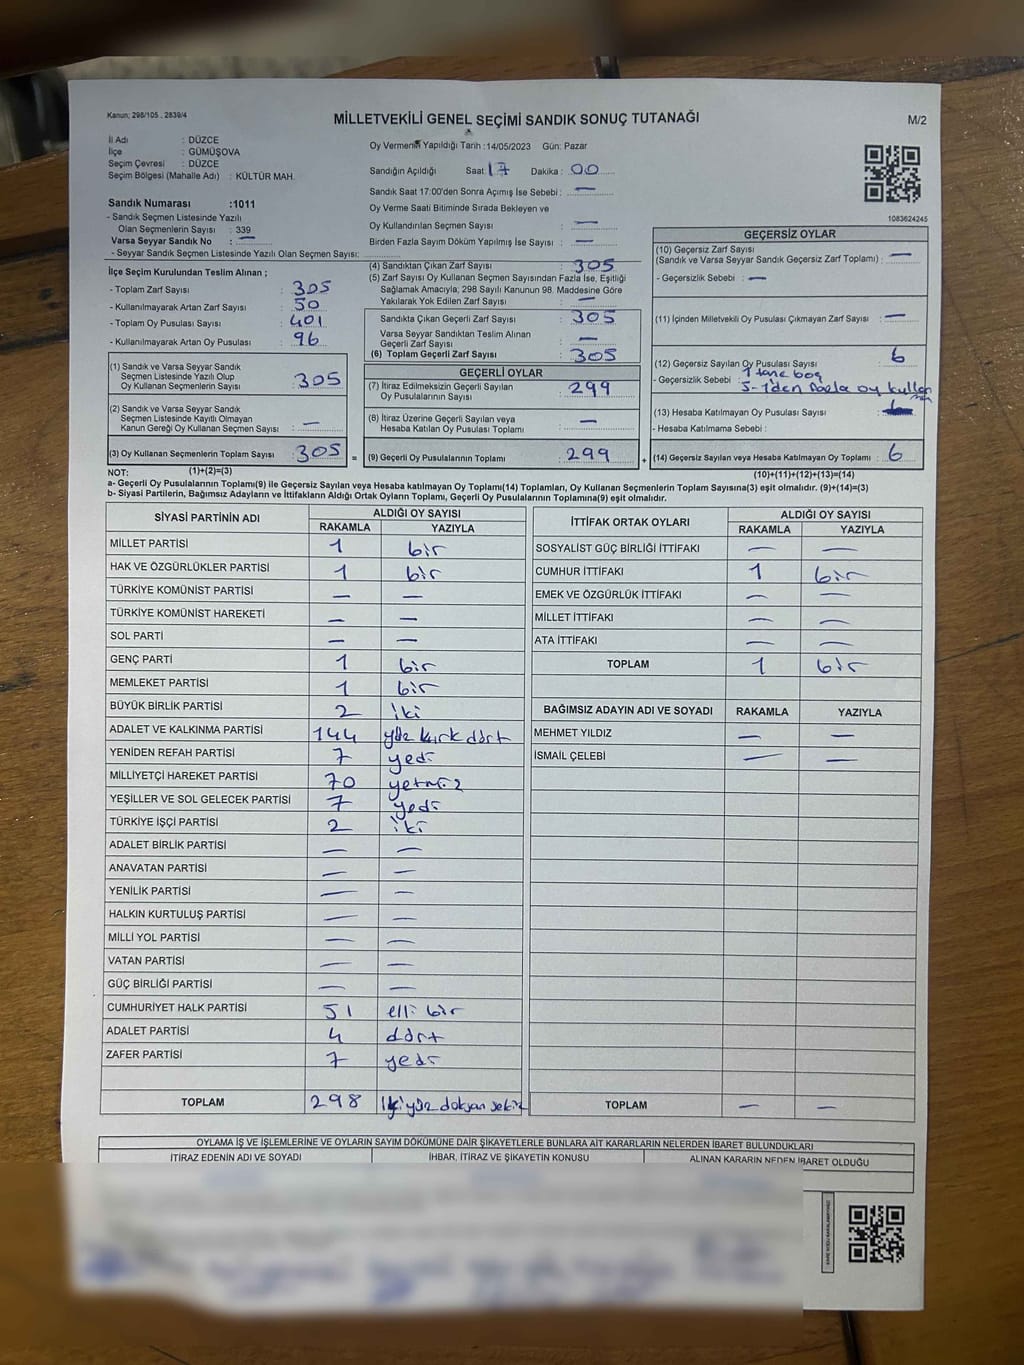 Kanun; 298/105 . 2839/4
MİLLETVEKİLİ GENEL SEÇİMİ SANDIK SONUÇ TUTANAĞI
M/2
İl Adı : DÜZCE
İlçe : GÜMÜŞOVA
Seçim Çevresi : DÜZCE
Seçim Bölgesi (Mahalle Adı) : KÜLTÜR MAH.
Sandık Numarası :1011
- Sandık Seçmen Listesinde Yazılı
Olan Seçmenlerin Sayısı : 339
Varsa Seyyar Sandık No : —
- Seyyar Sandık Seçmen Listesinde Yazılı Olan Seçmen Sayısı:
Oy Vermenin Yapıldığı Tarih :14/05/2023 Gün: Pazar
Sandığın Açıldığı Saat: 17 Dakika : 00
Sandık Saat 17:00'den Sonra Açımış İse Sebebi : —
Oy Verme Saati Bitiminde Sırada Bekleyen ve
Oy Kullandırılan Seçmen Sayısı : —
Birden Fazla Sayım Döküm Yapılmış İse Sayısı : —
1083624245
İlçe Seçim Kurulundan Teslim Alınan ;
- Toplam Zarf Sayısı : 305
- Kullanılmayarak Artan Zarf Sayısı : 50
- Toplam Oy Pusulası Sayısı : 401
- Kullanılmayarak Artan Oy Pusulası : 96
(1) Sandık ve Varsa Seyyar Sandık
Seçmen Listesinde Yazılı Olup
Oy Kullanan Seçmenlerin Sayısı : 305
(2) Sandık ve Varsa Seyyar Sandık
Seçmen Listesinde Kayıtlı Olmayan
Kanun Gereği Oy Kullanan Seçmen Sayısı : —
(3) Oy Kullanan Seçmenlerin Toplam Sayısı : 305 =
(4) Sandıktan Çıkan Zarf Sayısı : 305
(5) Zarf Sayısı Oy Kullanan Seçmen Sayısından Fazla İse, Eşitliği
Sağlamak Amacıyla; 298 Sayılı Kanunun 98. Maddesine Göre
Yakılarak Yok Edilen Zarf Sayısı : —
Sandıkta Çıkan Geçerli Zarf Sayısı : 305
Varsa Seyyar Sandıktan Teslim Alınan
Geçerli Zarf Sayısı : —
(6) Toplam Geçerli Zarf Sayısı : 305
GEÇERLİ OYLAR
(7) İtiraz Edilmeksizin Geçerli Sayılan
Oy Pusulalarının Sayısı : 299
(8) İtiraz Üzerine Geçerli Sayılan veya
Hesaba Katılan Oy Pusulası Toplamı : —
(9) Geçerli Oy Pusulalarının Toplamı : 299 +
GEÇERSİZ OYLAR
(10) Geçersiz Zarf Sayısı
(Sandık ve Varsa Seyyar Sandık Geçersiz Zarf Toplamı) : —
- Geçersizlik Sebebi : —
(11) İçinden Milletvekili Oy Pusulası Çıkmayan Zarf Sayısı : —
(12) Geçersiz Sayılan Oy Pusulası Sayısı : 6
- Geçersizlik Sebebi : 1 tane boş
5-1'den fazla oy kullan
(13) Hesaba Katılmayan Oy Pusulası Sayısı :
- Hesaba Katılmama Sebebi :
(14) Geçersiz Sayılan veya Hesaba Katılmayan Oy Toplamı : 6
NOT: (1)+(2)=(3) (10)+(11)+(12)+(13)=(14)
a- Geçerli Oy Pusulalarının Toplamı(9) ile Geçersiz Sayılan veya Hesaba katılmayan Oy Toplamı(14) Toplamları, Oy Kullanan Seçmenlerin Toplam Sayısına(3) eşit olmalıdır. (9)+(14)=(3)
b- Siyasi Partilerin, Bağımsız Adayların ve İttifakların Aldığı Ortak Oyların Toplamı, Geçerli Oy Pusulalarının Toplamına(9) eşit olmalıdır.
SİYASİ PARTİNİN ADI ALDIĞI OY SAYISI
RAKAMLA YAZIYLA
MİLLET PARTİSİ 1 bir
HAK VE ÖZGÜRLÜKLER PARTİSİ 1 bir
TÜRKİYE KOMÜNİST PARTİSİ — —
TÜRKİYE KOMÜNİST HAREKETİ — —
SOL PARTİ — —
GENÇ PARTİ 1 bir
MEMLEKET PARTİSİ 1 bir
BÜYÜK BİRLİK PARTİSİ 2 iki
ADALET VE KALKINMA PARTİSİ 144 yüz kırk dört
YENİDEN REFAH PARTİSİ 7 yedi
MİLLİYETÇİ HAREKET PARTİSİ 70 yetmiş
YEŞİLLER VE SOL GELECEK PARTİSİ 7 yedi
TÜRKİYE İŞÇİ PARTİSİ 2 iki
ADALET BİRLİK PARTİSİ — —
ANAVATAN PARTİSİ — —
YENİLİK PARTİSİ — —
HALKIN KURTULUŞ PARTİSİ — —
MİLLİ YOL PARTİSİ — —
VATAN PARTİSİ — —
GÜÇ BİRLİĞİ PARTİSİ — —
CUMHURİYET HALK PARTİSİ 51 elli bir
ADALET PARTİSİ 4 dört
ZAFER PARTİSİ 7 yedi
TOPLAM 298 ikiyüz doksan sekiz
İTTİFAK ORTAK OYLARI ALDIĞI OY SAYISI
RAKAMLA YAZIYLA
SOSYALİST GÜÇ BİRLİĞİ İTTİFAKI — —
CUMHUR İTTİFAKI 1 bir
EMEK VE ÖZGÜRLÜK İTTİFAKI — —
MİLLET İTTİFAKI — —
ATA İTTİFAKI — —
TOPLAM 1 bir
BAĞIMSIZ ADAYIN ADI VE SOYADI RAKAMLA YAZIYLA
MEHMET YILDIZ — —
İSMAİL ÇELEBİ — —
TOPLAM — —
OYLAMA İŞ VE İŞLEMLERİNE VE OYLARIN SAYIM DÖKÜMÜNE DAİR ŞİKAYETLERLE BUNLARA AİT KARARLARIN NELERDEN İBARET BULUNDUKLARI
İTİRAZ EDENİN ADI VE SOYADI İHBAR, İTİRAZ VE ŞİKAYETİN KONUSU ALINAN KARARIN NEDEN İBARET OLDUĞU